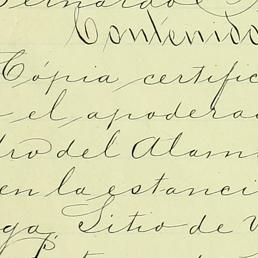 Contenido
Cópia certific
el apodera
dro del Alam
en la estanci
ga, Sitio de